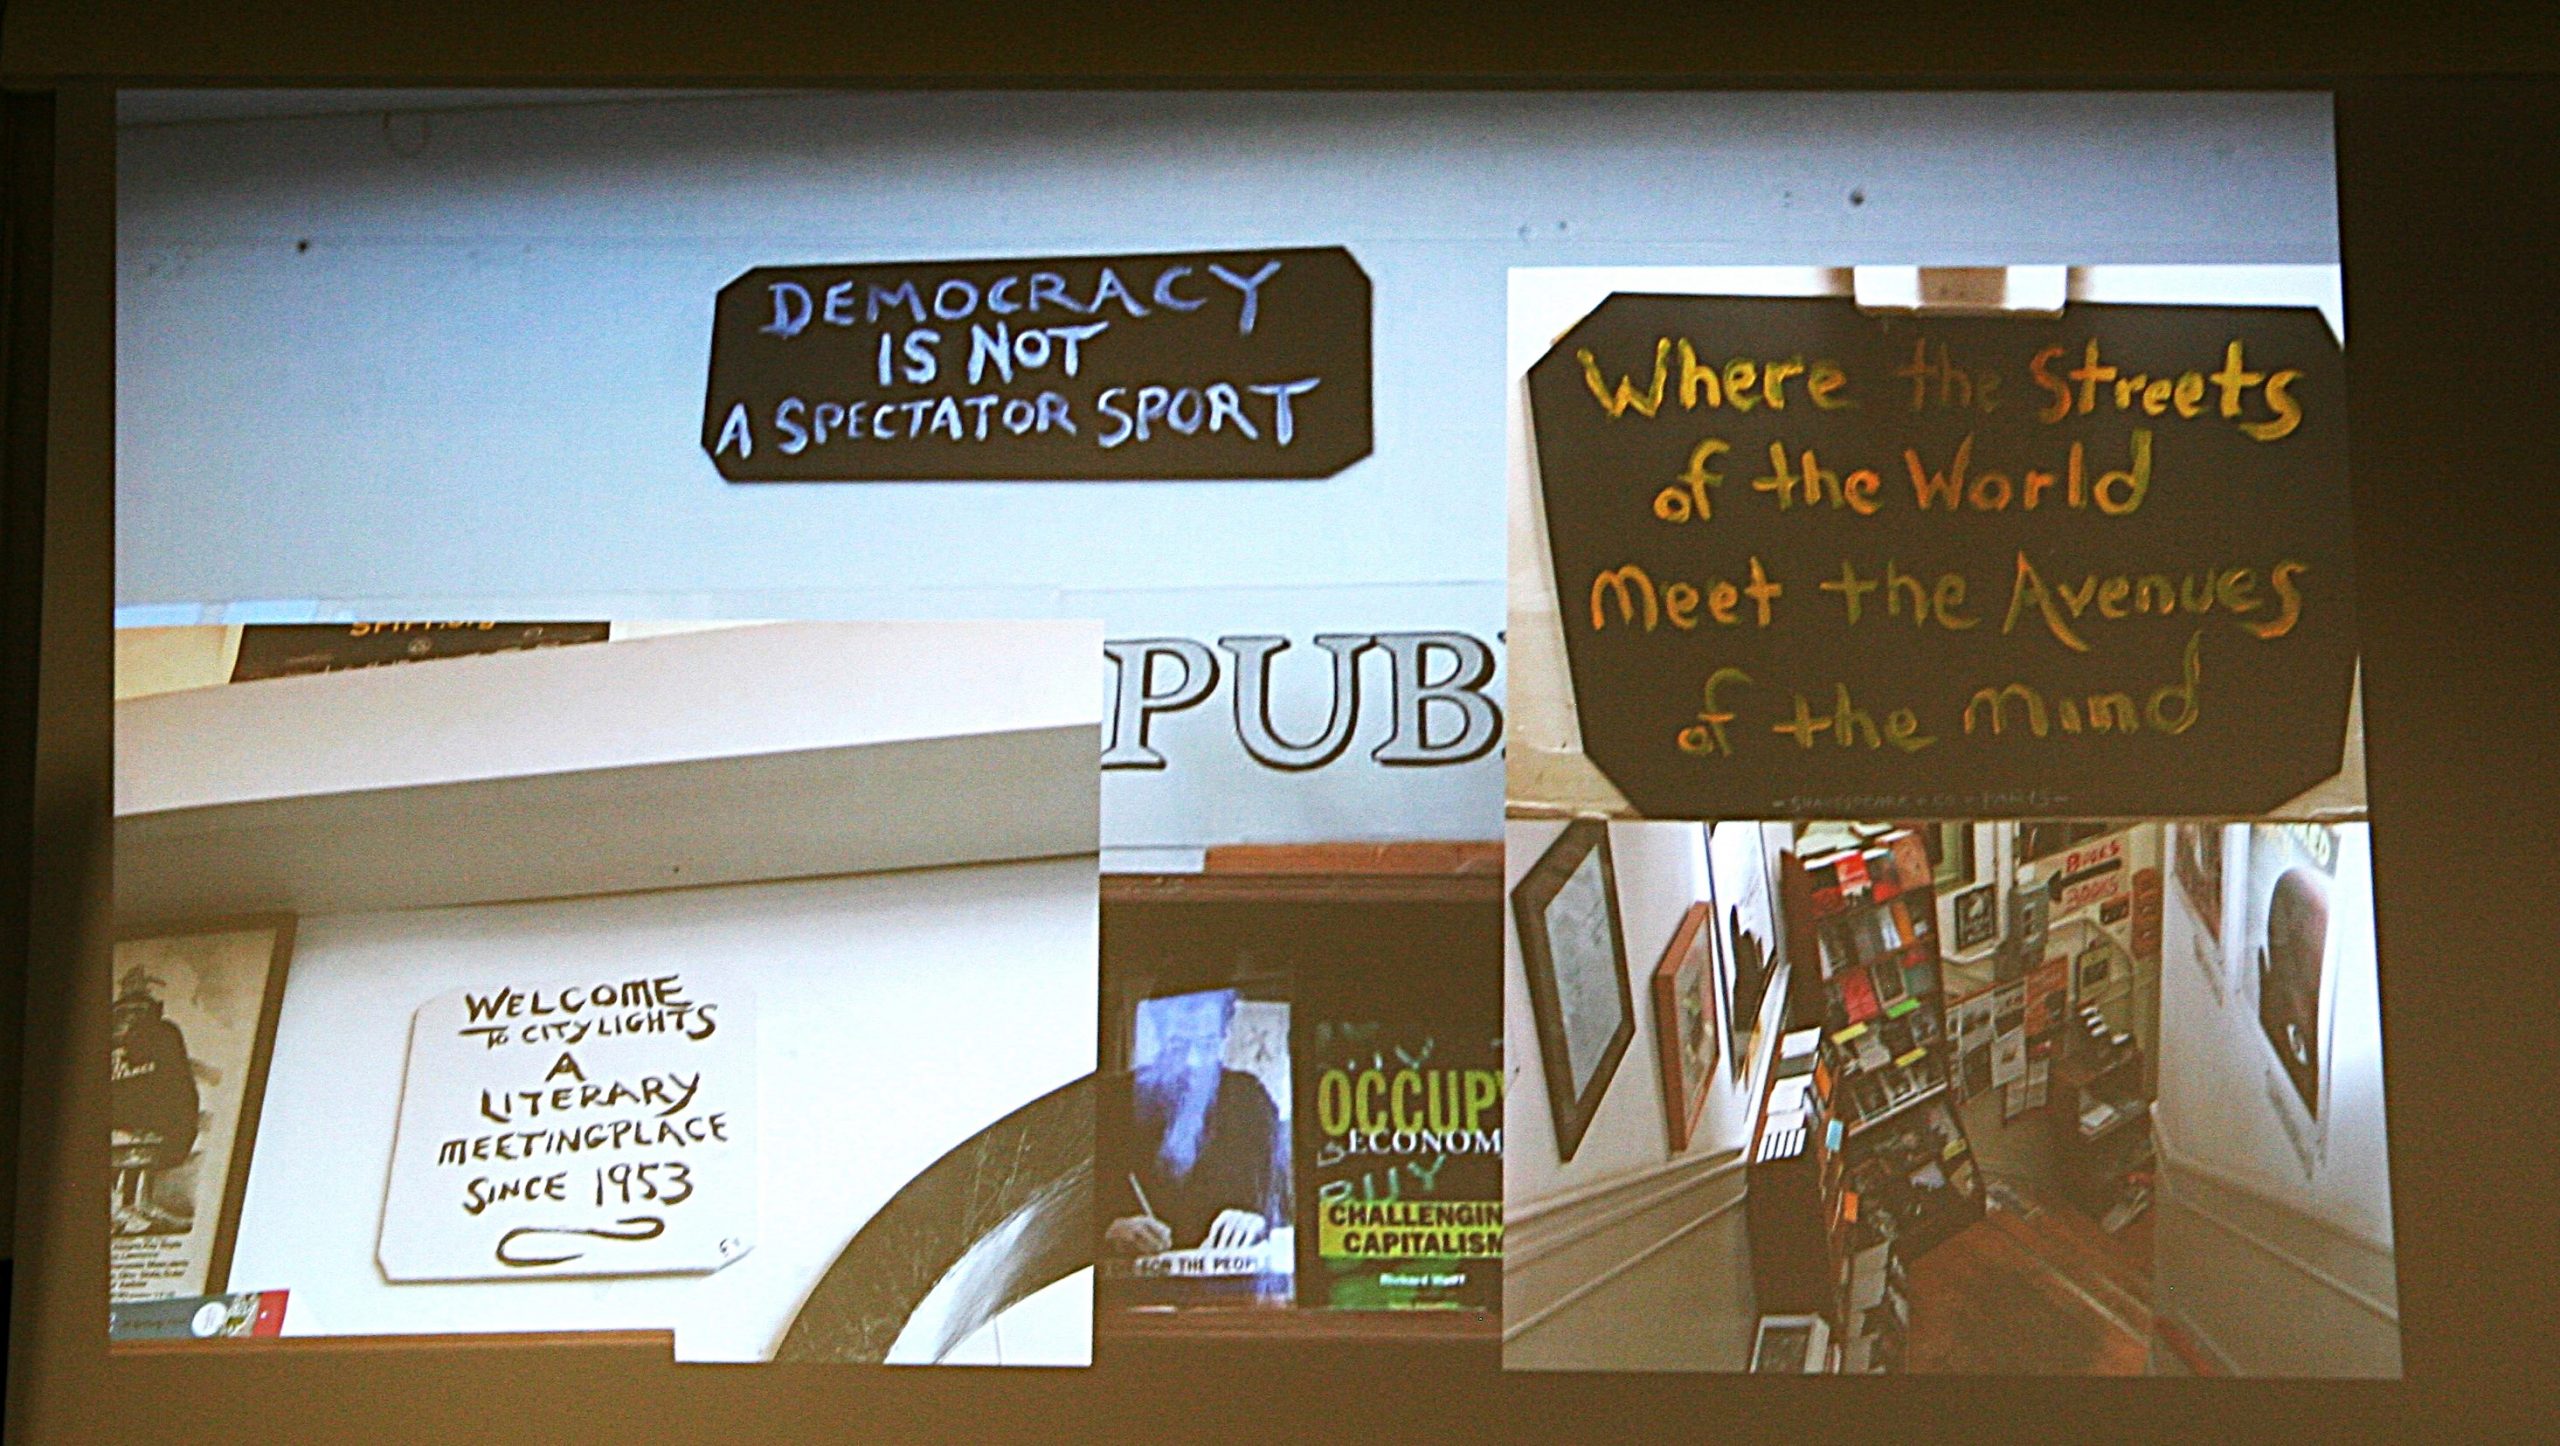 DEMOCRACY
IS NOT
A SPECTATOR SPORT
Where the Streets
of the World
Meet the Avenues
of the Mind
PUB
WELCOME
TO CITY LIGHTS
A
LITERARY
MEETINGPLACE
SINCE 1953
OCCUPY
ECONOM
CHALLENGIN
CAPITALISM
FOR THE PEOPL
BOOKS
BOOKS